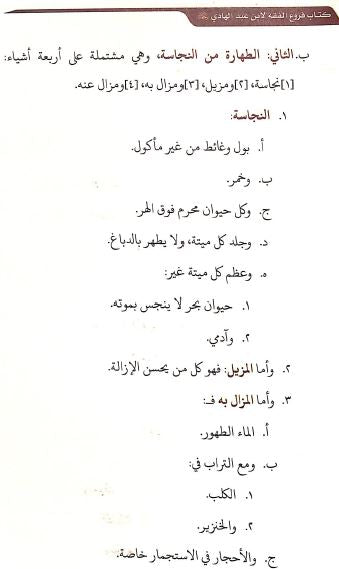 كتاب فروع الفقه لابن عبد الهادي
ب. الثاني: الطهارة من النجاسة، وهي مشتملة على أربعة أشياء:
[١]نجاسة، [٢]ومزيل، [٣]ومزال به، [٤]ومزال عنه.
١. النجاسة:
أ. بول وغائط من غير مأكول.
ب. وخمر.
ج. وكل حيوان محرم فوق الهر.
د. وجلد كل ميتة، ولا يطهر بالدباغ.
ه. وعظم كل ميتة غير:
١. حيوان بحر لا ينجس بموته.
٢. وآدمي.
٢. وأما المزيل: فهو كل من يحسن الإزالة.
٣. وأما المزال به فـ:
أ. الماء الطهور.
ب. ومع التراب في:
١. الكلب.
٢. والخنزير.
ج. والأحجار في الاستجمار خاصة.